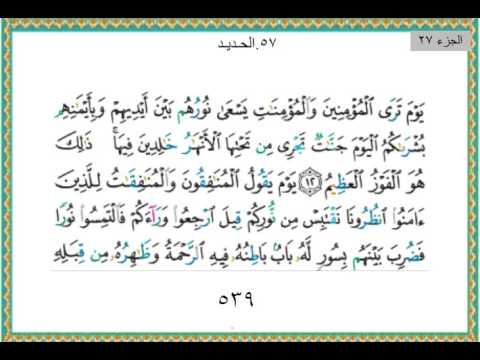 الجزء ٢٧
٥٧.الحديد
يَوْمَ تَرَى ٱلْمُؤْمِنِينَ وَٱلْمُؤْمِنَٰتِ يَسْعَىٰ نُورُهُم بَيْنَ أَيْدِيهِمْ وَبِأَيْمَٰنِهِم
بُشْرَىٰكُمُ ٱلْيَوْمَ جَنَّٰتٌ تَجْرِى مِن تَحْتِهَا ٱلْأَنْهَٰرُ خَٰلِدِينَ فِيهَا ۚ ذَٰلِكَ
هُوَ ٱلْفَوْزُ ٱلْعَظِيمُ ١٢ يَوْمَ يَقُولُ ٱلْمُنَٰفِقُونَ وَٱلْمُنَٰفِقَٰتُ لِلَّذِينَ
ءَامَنُوا۟ ٱنظُرُونَا نَقْتَبِسْ مِن نُّورِكُمْ قِيلَ ٱرْجِعُوا۟ وَرَآءَكُمْ فَٱلْتَمِسُوا۟ نُورًا
فَضُرِبَ بَيْنَهُم بِسُورٍ لَّهُۥ بَابٌۢ بَاطِنُهُۥ فِيهِ ٱلرَّحْمَةُ وَظَٰهِرُهُۥ مِن قِبَلِهِ
٥٣٩